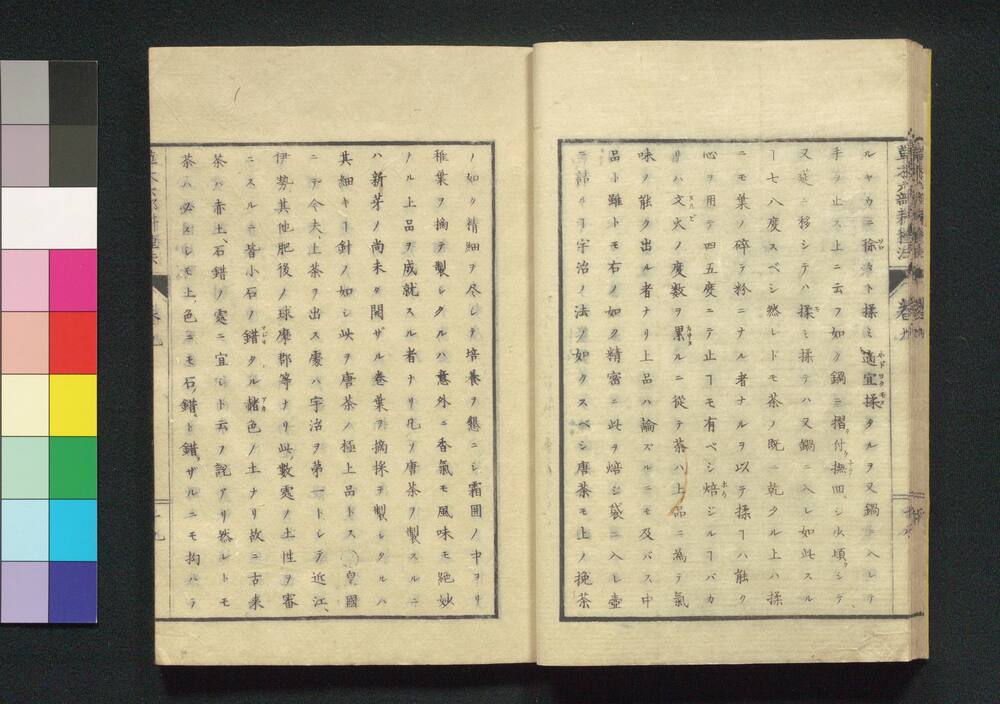 草木六部耕種法 巻九
ルヤカニ徐々ト揉ミ適宜揉タルヲ又鍋ニ入レテ
手ヲ止ス上ニ云フ如ク鍋ニ摺付撫回シ少頃シテ
又莚ニ移シテハ揉ミ揉テハ又鍋ニ入レ如此スル
ヿ七八度スベシ然レドモ茶ノ既ニ乾タル上ハ揉
ニモ葉ノ碎テ粉ニナル者ナルヲ以テ揉ヿハ能ク
心ヲ用テ四五度ニテ止ヿモ有ベシ焙シルヿバカ
リハ文火ノ度数ヲ累ルニ從テ茶ハ上品ニ為テ氣
味ノ能ク出ル者ナリ上品ハ論ズルニモ及バス中
品ト雖トモ右ノ如ク精密ニ此ヲ焙シ袋ニ入レ壺
ニ詰ルヿ宇治ノ法ノ如クスベシ唐茶モ上ノ挽茶
ノ如ク精細ヲ尽シテ培養ヲ懇ニシ霜囲ノ中ヨリ
稚葉ヲ摘テ製シタルハ意外ニ香氣モ風味モ絶妙
ノル上品ヲ成就スル者ナリ凡ソ唐茶ヲ製スルニ
ハ新芽ノ尚未タ開ザル巻葉ヲ摘採テ製シタルハ
其細キヿ針ノ如シ此ヲ唐茶ノ極上品トス〇皇國
ニテ今夫上茶ヲ出ス處ハ宇治ヲ第一トシテ近江、
伊勢其他肥後ノ球摩郡等ナリ此數處ノ土性ヲ審
ニスルニ皆小石ノ錯タル赭色ノ土ナリ故ニ古来
茶ハ赤土、石錯ノ處ニ宜シト云フ説アリ然レトモ
茶ハ必スシモ土、色ニモ石、錯ト錯ザルニモ拘ハラ